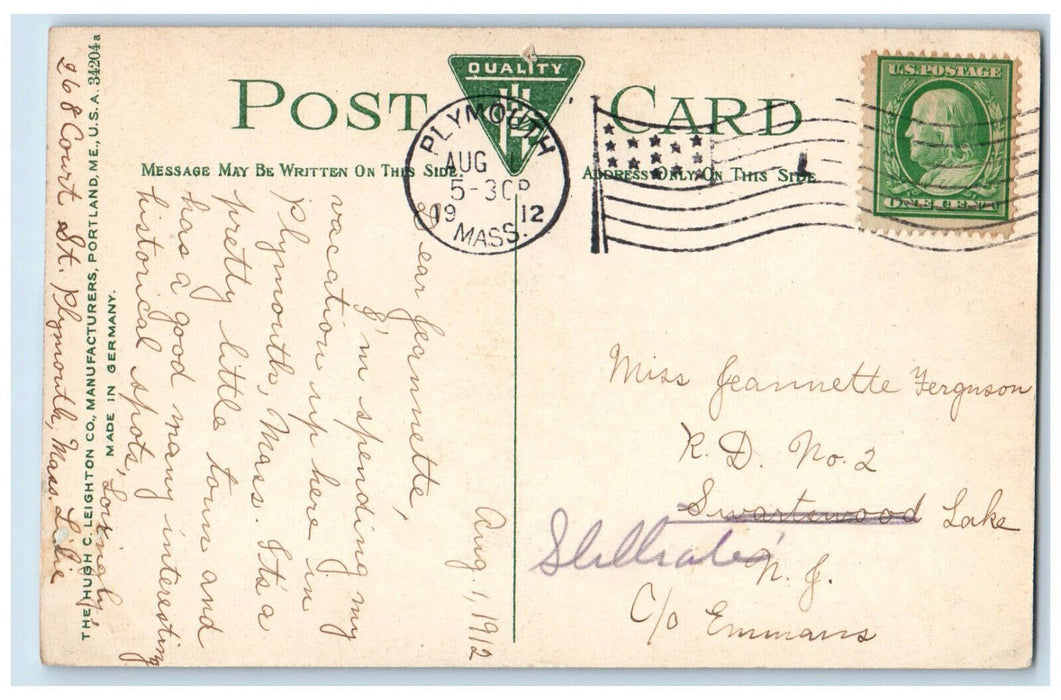 POST CARD
QUALITY
MESSAGE MAY BE WRITTEN ON THIS SIDE.
ADDRESS ONLY ON THIS SIDE
PLYMOUTH
AUG 1
5-30P
1912
MASS.
U.S. POSTAGE
ONE CENT
Aug. 1, 1912
Dear Jeannette,
I'm spending my
vacation up here in
Plymouth, Mass. It's a
pretty little town and
has a good many interesting
historical spots,
Lovingly,
268 Court St. Plymouth, Mass.
Miss Jeannette Ferguson
R. D. No. 2
Swartswood Lake
N. J.
C/o Emmans
THE HUGH C. LEIGHTON CO., MANUFACTURERS, PORTLAND, ME., U.S.A. 34204a
MADE IN GERMANY.